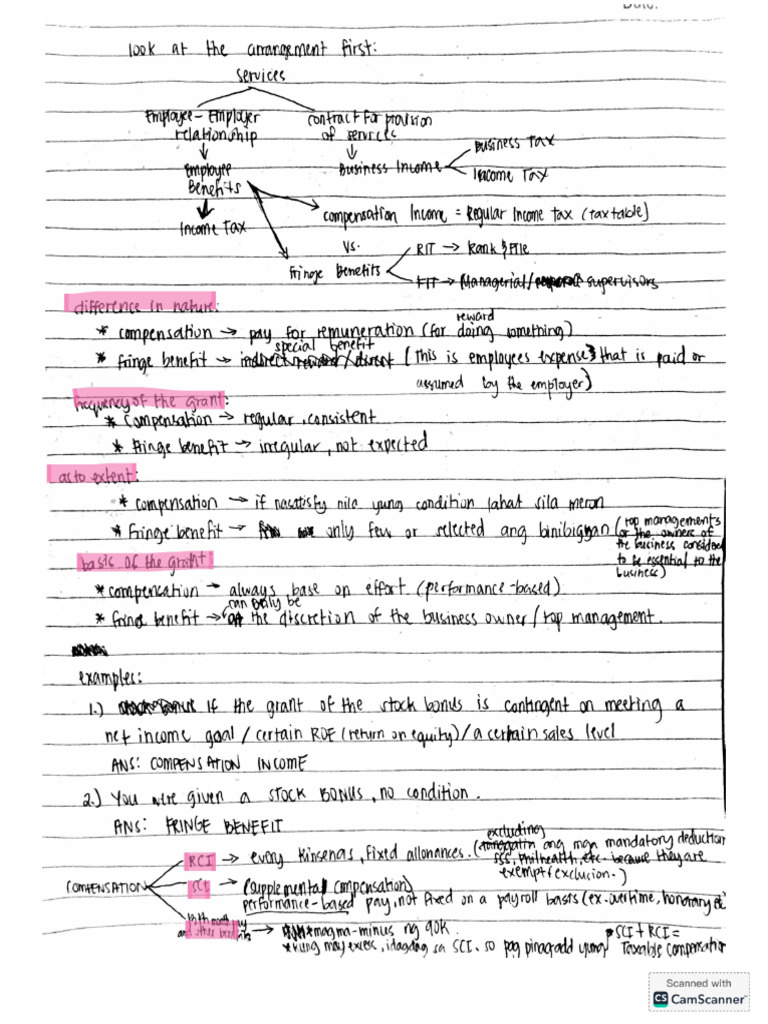 Date:
look at the arrangement first:
services
Employee-Employer relationship
contract for provision of services
Business Tax
Employee Benefits
Business Income
Income Tax
Income Tax
compensation Income = Regular Income tax (tax table)
vs.
RIT → Rank & File
Fringe Benefits
FIT → Managerial/ supervisors
difference in nature:
reward
* compensation → pay for remuneration (for doing something)
special benefit
* fringe benefit → indirect reward/direct (This is employees expense that is paid or
assumed by the employer)
frequency of the grant:
* Compensation → regular, consistent
* Fringe benefit → irregular, not expected
as to extent:
* compensation → if nasatisfy nila yung condition lahat sila meron
* fringe benefit → only few or selected ang binibigyan (top managements
or the owners of
the business considered
to be essential to the
business)
basis of the grant:
* compensation → always base on effort (performance-based)
can only be
* fringe benefit → the discretion of the business owner/top management.
examples:
1.) stock bonus If the grant of the stock bonus is contingent on meeting a
net income goal / certain ROE (return on equity)/a certain sales level
ANS: COMPENSATION INCOME
2.) You were given a STOCK BONUS, no condition.
ANS: FRINGE BENEFIT
excluding
RCI → every kinsenas, fixed allonances. ( ang mga mandatory deduction
SSS, Philhealth, etc. because they are
exempt/exclucion.)
COMPENSATION
SCI → (supplemental compensation)
performance-based pay, not fixed on a payroll basis (ex. overtime, honorary etc
13th month pay
and other benefits → *magma-minus ng 90K.
* SCI + RCI =
*kung may excess, idagdag sa SCI. so pag pinagadd yung Taxable compensation
Scanned with
CS CamScanner